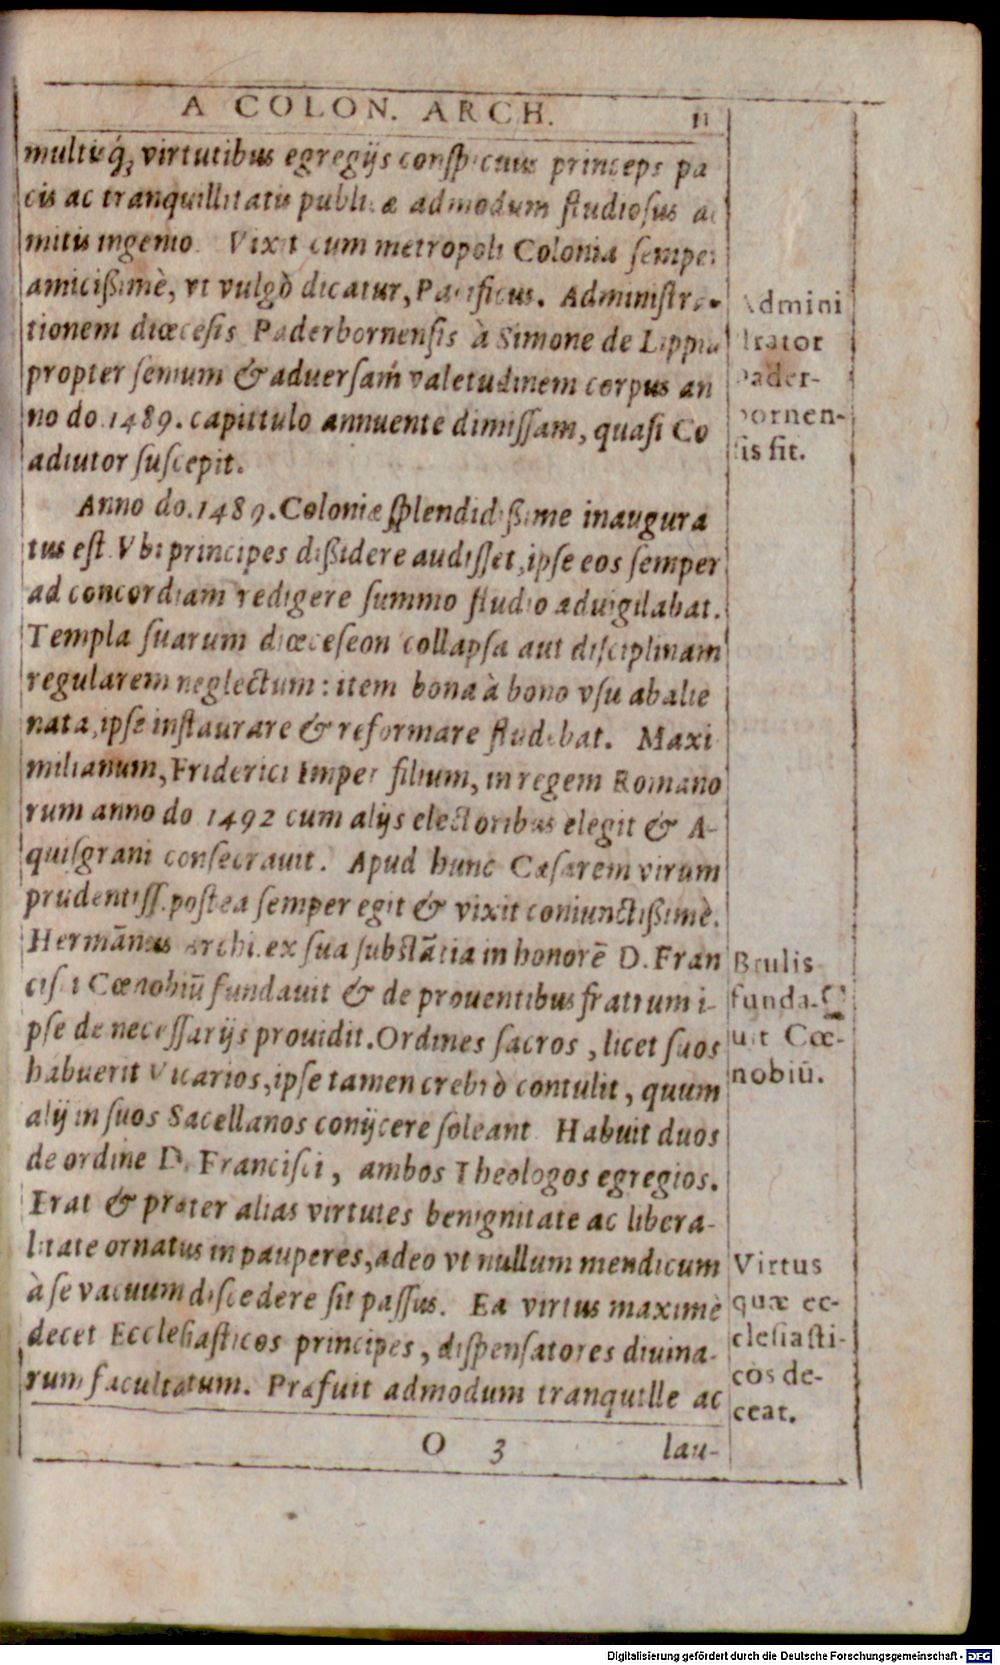 A COLON. ARCH. 11
multisq́; virtutibus egregijs conspicuus princeps pa
cis ac tranquillitatis publicæ admodum studiosus ac
mitis ingenio. Vixit cum metropoli Colonia semper
amicißimè, vt vulgò dicatur, Pacificus. Administra-
tionem diœcesis Paderbornensis à Simone de Lippia
propter senium & aduersam̀ valetudinem corpus an
no do. 1489. capittulo annuente dimissam, quasi Co
adiutor suscepit.
Admini
strator
Pader-
bornen-
sis fit.
Anno do. 1489. Coloniæ splendidißime inaugura
tus est. Vbi principes dißidere audisset, ipse eos semper
ad concordiam redigere summo studio aduigilabat.
Templa suarum diœceseon collapsa aut disciplinam
regularem neglectum: item bona à bono vsu abalie
nata, ipse instaurare & reformare studebat. Maxi
milianum, Friderici Imper filium, in regem Romano
rum anno do 1492 cum alijs electoribus elegit & A-
quisgrani consecrauit. Apud hunc Cæsarem virum
prudentiss. postea semper egit & vixit coniunctißimè.
Hermānus Archi. ex sua substātia in honorē D. Fran
cisci Cœnobiū fundauit & de prouentibus fratrum i-
pse de necessarijs prouidit. Ordines sacros, licet suos
habuerit Vicarios, ipse tamen crebrò contulit, quum
alij in suos Sacellanos conijcere soleant. Habuit duos
de ordine D. Francisci, ambos Theologos egregios.
Erat & præter alias virtutes benignitate ac libera-
litate ornatus in pauperes, adeo vt nullum mendicum
à se vacuum discedere sit passus. Ea virtus maximè
decet Ecclesiasticos principes, dispensatores diuina-
rum facultatum. Præfuit admodum tranquille ac
Brulis
funda-
uit Cœ-
nobiū.
Virtus
quæ ec-
clesiasti-
cos de-
ceat.
O 3 lau-
Digitalisierung gefördert durch die Deutsche Forschungsgemeinschaft - DFG